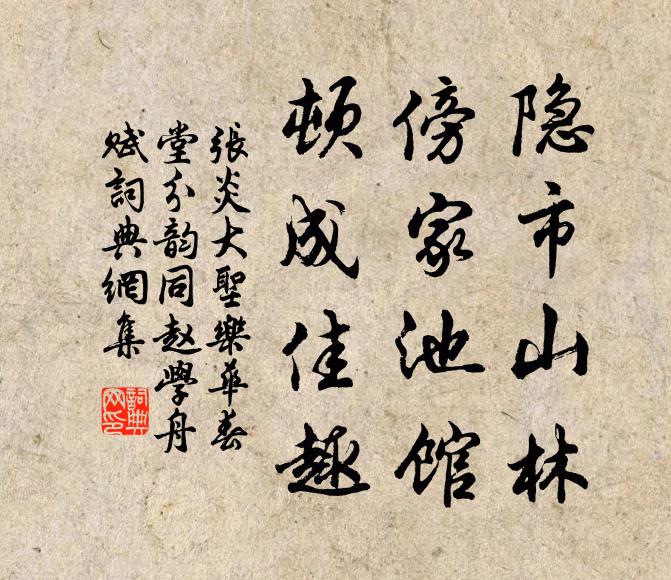 隐市山林
傍家池馆
顿成佳趣
張炎大聖樂華春
堂分韵同赵學舟
赋詞典網集
詞典網印